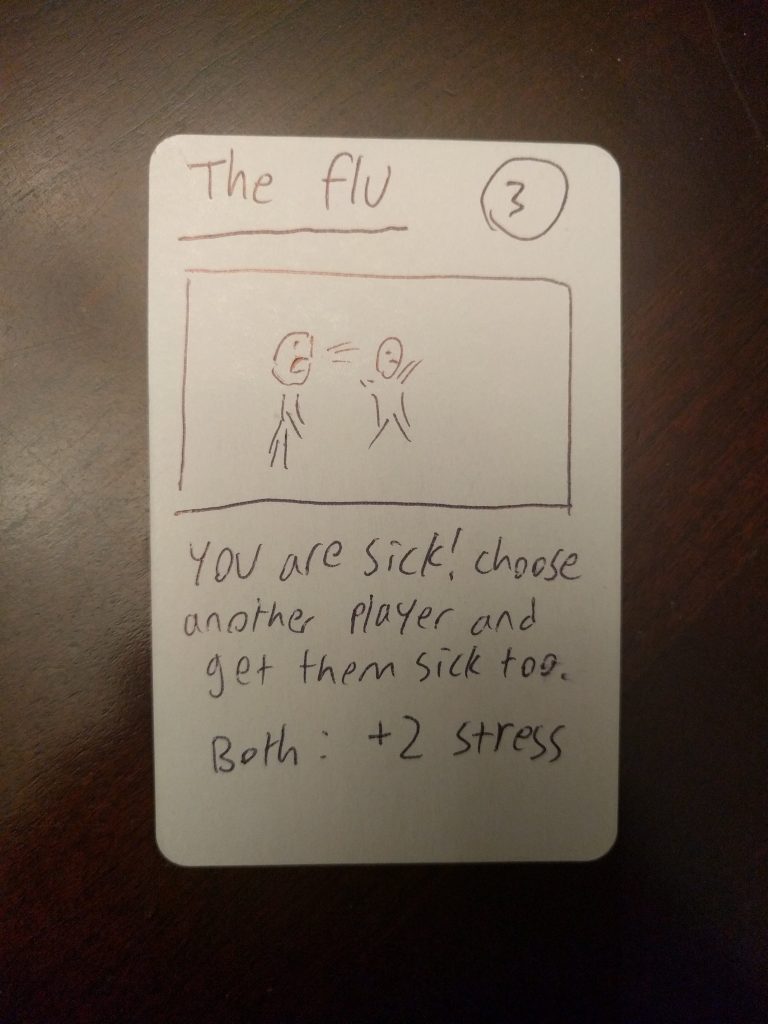 The flu
3
You are sick! choose
another player and
get them sick too.
Both: +2 stress